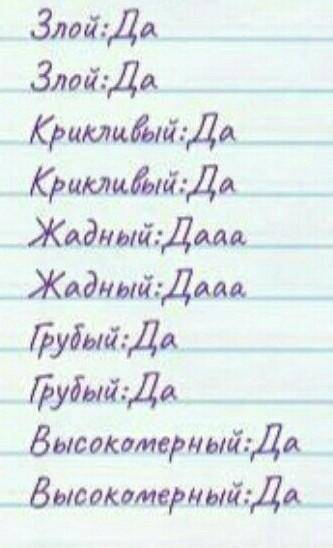 Злой:Да
Злой:Да
Крикливый:Да
Крикливый:Да
Жадный:Дааа
Жадный:Дааа
Грубый:Да
Грубый:Да
Высокомерный:Да
Высокомерный:Да